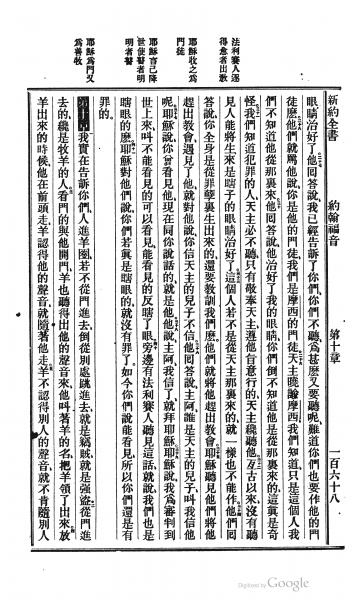 新約全書　約翰福音　第十章　一百六十八
眼睛治好了他回答說我已經告訴了你們你們不聽爲甚麽又要聽呢難道你們也要作他的門
徒麽他們就罵他說你是他的門徒我們是摩西的門徒天主曉諭摩西我們知道只是這個人我
們不知道他從那裏來他回答說他治好了我的眼睛你們倒不知道他是從那裏來的這眞是奇
怪我們知道犯罪的人天主必不聽只有敬奉天主遵他旨意行的天主纔聽他亙古以來沒有聽
見人能將生來是瞎子的眼睛治好了這個人若不是從天主那裏來的就一樣也不能作他們回
答說你全身是從罪孽裏生出來的還要教訓我們麽他們就將他趕出教會耶穌聽見他們將他
趕出教會遇見了他就對他說你信天主的兒子不信他回答說主阿誰是天主的兒子叫我信他
呢耶穌說你曾看見他現在同你說話的就是他他說主阿我信了就拜耶穌耶穌說我爲審判到
世上來叫不能看見的可以看見能看見的反瞎了眼旁邊有法利賽人聽見這話就說我們也是
瞎眼的麽耶穌對他們說你們若眞是瞎眼的就沒有罪了如今你們說能看見所以你們還是有
罪的
第十章我實在告訴你們人進羊圈若不從門進去倒從別處跳進去就是竊賊就是強盜從門進
去的纔是牧羊的人看門的與他開門羊也聽得出他的聲音來他叫著羊的名把羊領了出來放
羊出來的時候他在前頭走羊認得他的聲音就隨著他走羊不認得別人的聲音就不肯隨別人
法利賽人逐
得愈者出教
耶穌收之爲
門徒
耶穌言己降
世使瞽者明
明者瞽
耶穌爲門又
爲善牧
Digitized by Google